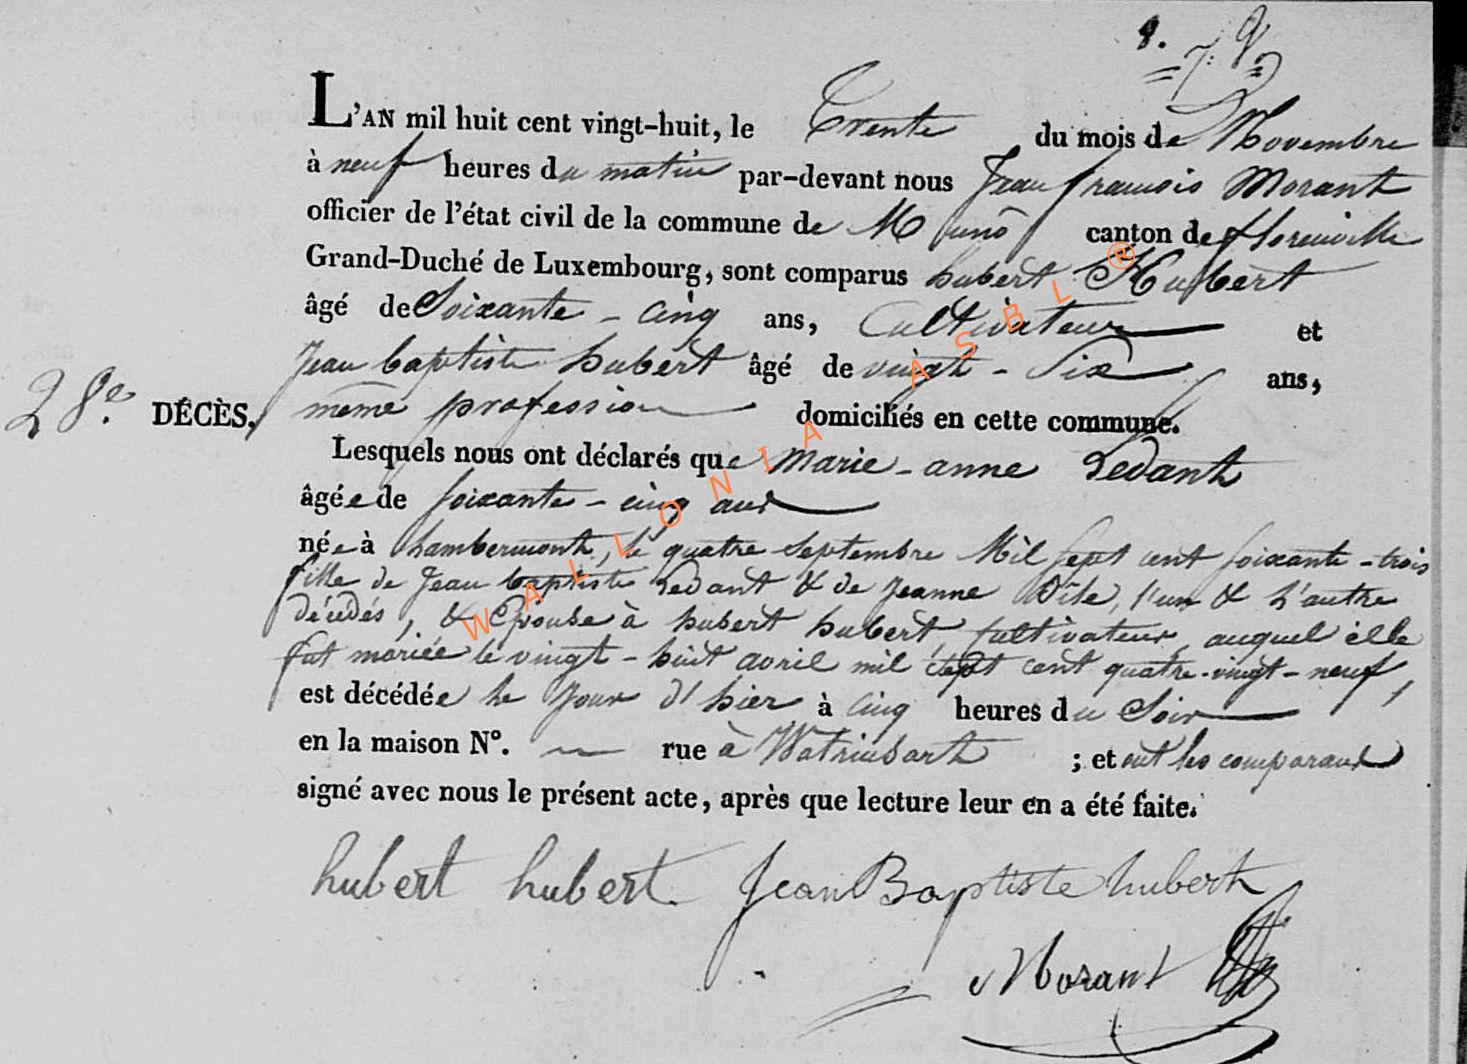 8.
7: 9
L'AN mil huit cent vingt-huit, le Trente du mois de Novembre
à neuf heures du matin par-devant nous Jean francois Morant
officier de l'état civil de la commune de Muno canton de florenville
Grand-Duché de Luxembourg, sont comparus hubert Hubert
âgé de Soixante - cinq ans, Cultivateur et
Jean baptiste hubert âgé de vingt - Six ans,
28e. DÉCÈS. même profession domiciliés en cette commune.
Lesquels nous ont déclarés que Marie - anne Ledant
âgée de Soixante - cinq ans
née à Chambermont, le quatre Septembre Mil Sept cent Soixante - trois
fille de Jean baptiste Ledant & de Jeanne, l'un & l'autre
décédés, & Epouse à hubert hubert, cultivateur, auquel elle
fut mariée le vingt - huit avril mil Sept cent quatre-vingt-neuf,
est décédée le Jour d'hier à cinq heures du Soir
en la maison N°. rue à Watrinsart ; et ont les comparans
signé avec nous le présent acte, après que lecture leur en a été faite.
hubert hubert. Jean Baptiste hubert
Morant
WALLONIA ASBL ®